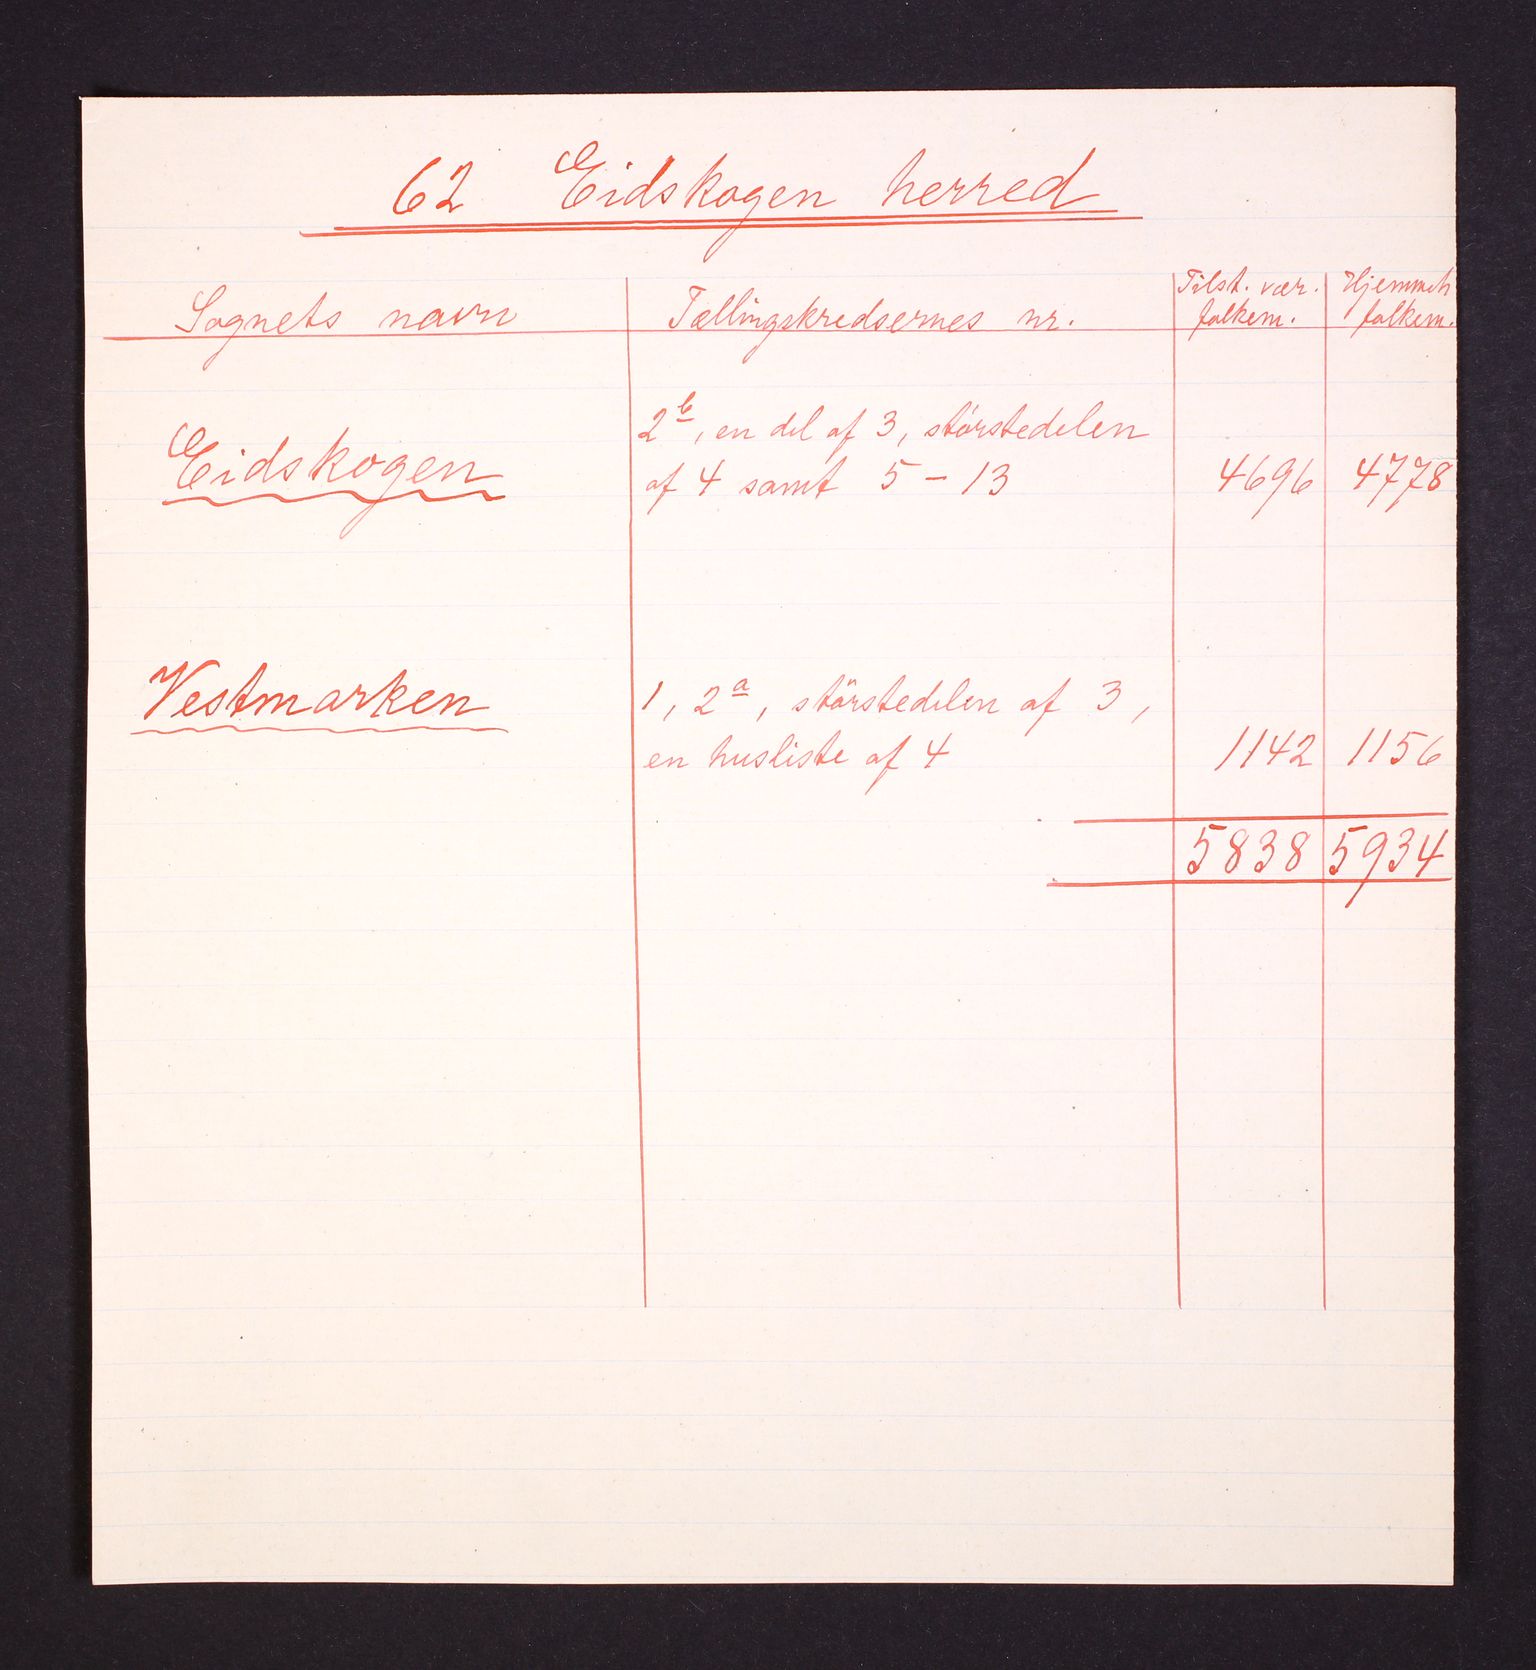 62 Eidskogen herred
Sognets navn Tællingskredsernes nr. Tilst. vær. folkem. Hjemmeh folkem.
2b, en del af 3, störstedelen
Eidskogen af 4 samt 5 – 13 4696 4778
Vestmarken 1, 2a, störstedelen af 3,
en husliste af 4 1142 1156
5838 5934